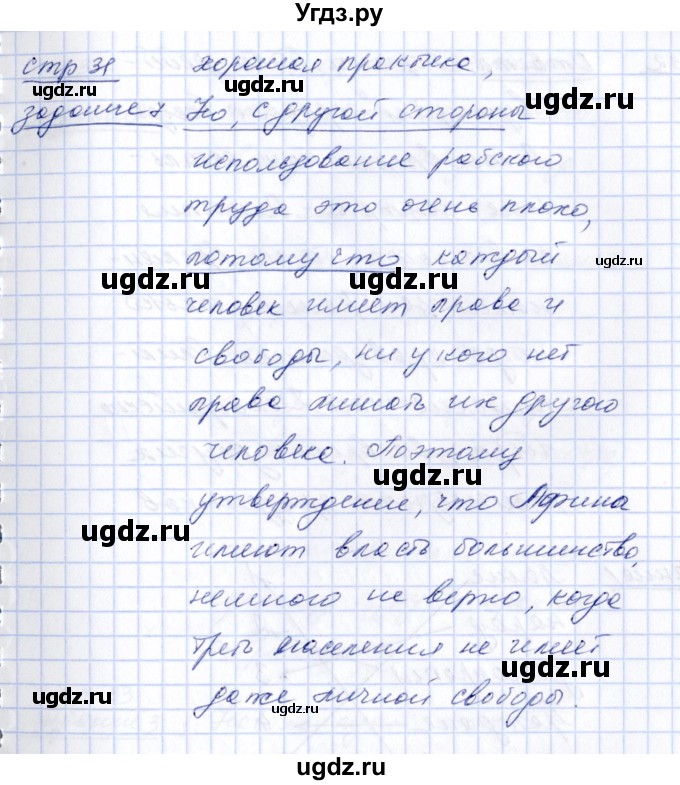 Угдз.ру
стр 31 хорошая практика,
задание 7 Но, с другой стороны
использование рабского
труда это очень плохо,
потому что каждый
человек имеет права и
свободы, ни у кого нет
права лишать их другого
человека. Поэтому
утверждение, что Афина
имеют власть большинства,
немного не верно, когда
треть населения не имеет
даже личной свободы.
ugdz.ru
ugdz.ru
ugdz.ru
ugdz.ru
ugdz.ru
ugdz.ru
ugdz.ru
ugdz.ru
ugdz.ru
ugdz.ru
ugdz.ru
ugdz.ru